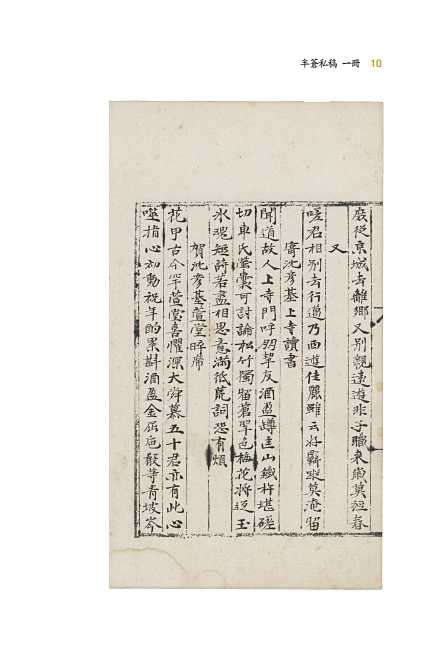 半蒼私稿 一冊 10
底從京城去離鄉又別親遠遊非子職來歲莫經春
又
嗟君相別去行邁乃西遊佳麗雖云好關蹤莫淹留
寄沈彥基上寺讀書
聞道故人上寺門呼朋挈友酒盈罇圭山鐵杵堪磋
切車氏螢囊可討論松竹獨留蒼翠色梅花將返玉
氷魂短詩若盡相思意滿紙荒詞恐有煩
賀沈彥基萱堂晬席
花甲古今罕萱堂喜懼深大舜慕五十君亦有此心
噬指心初動祝年酌累斟酒盈金 色 等青坡岑